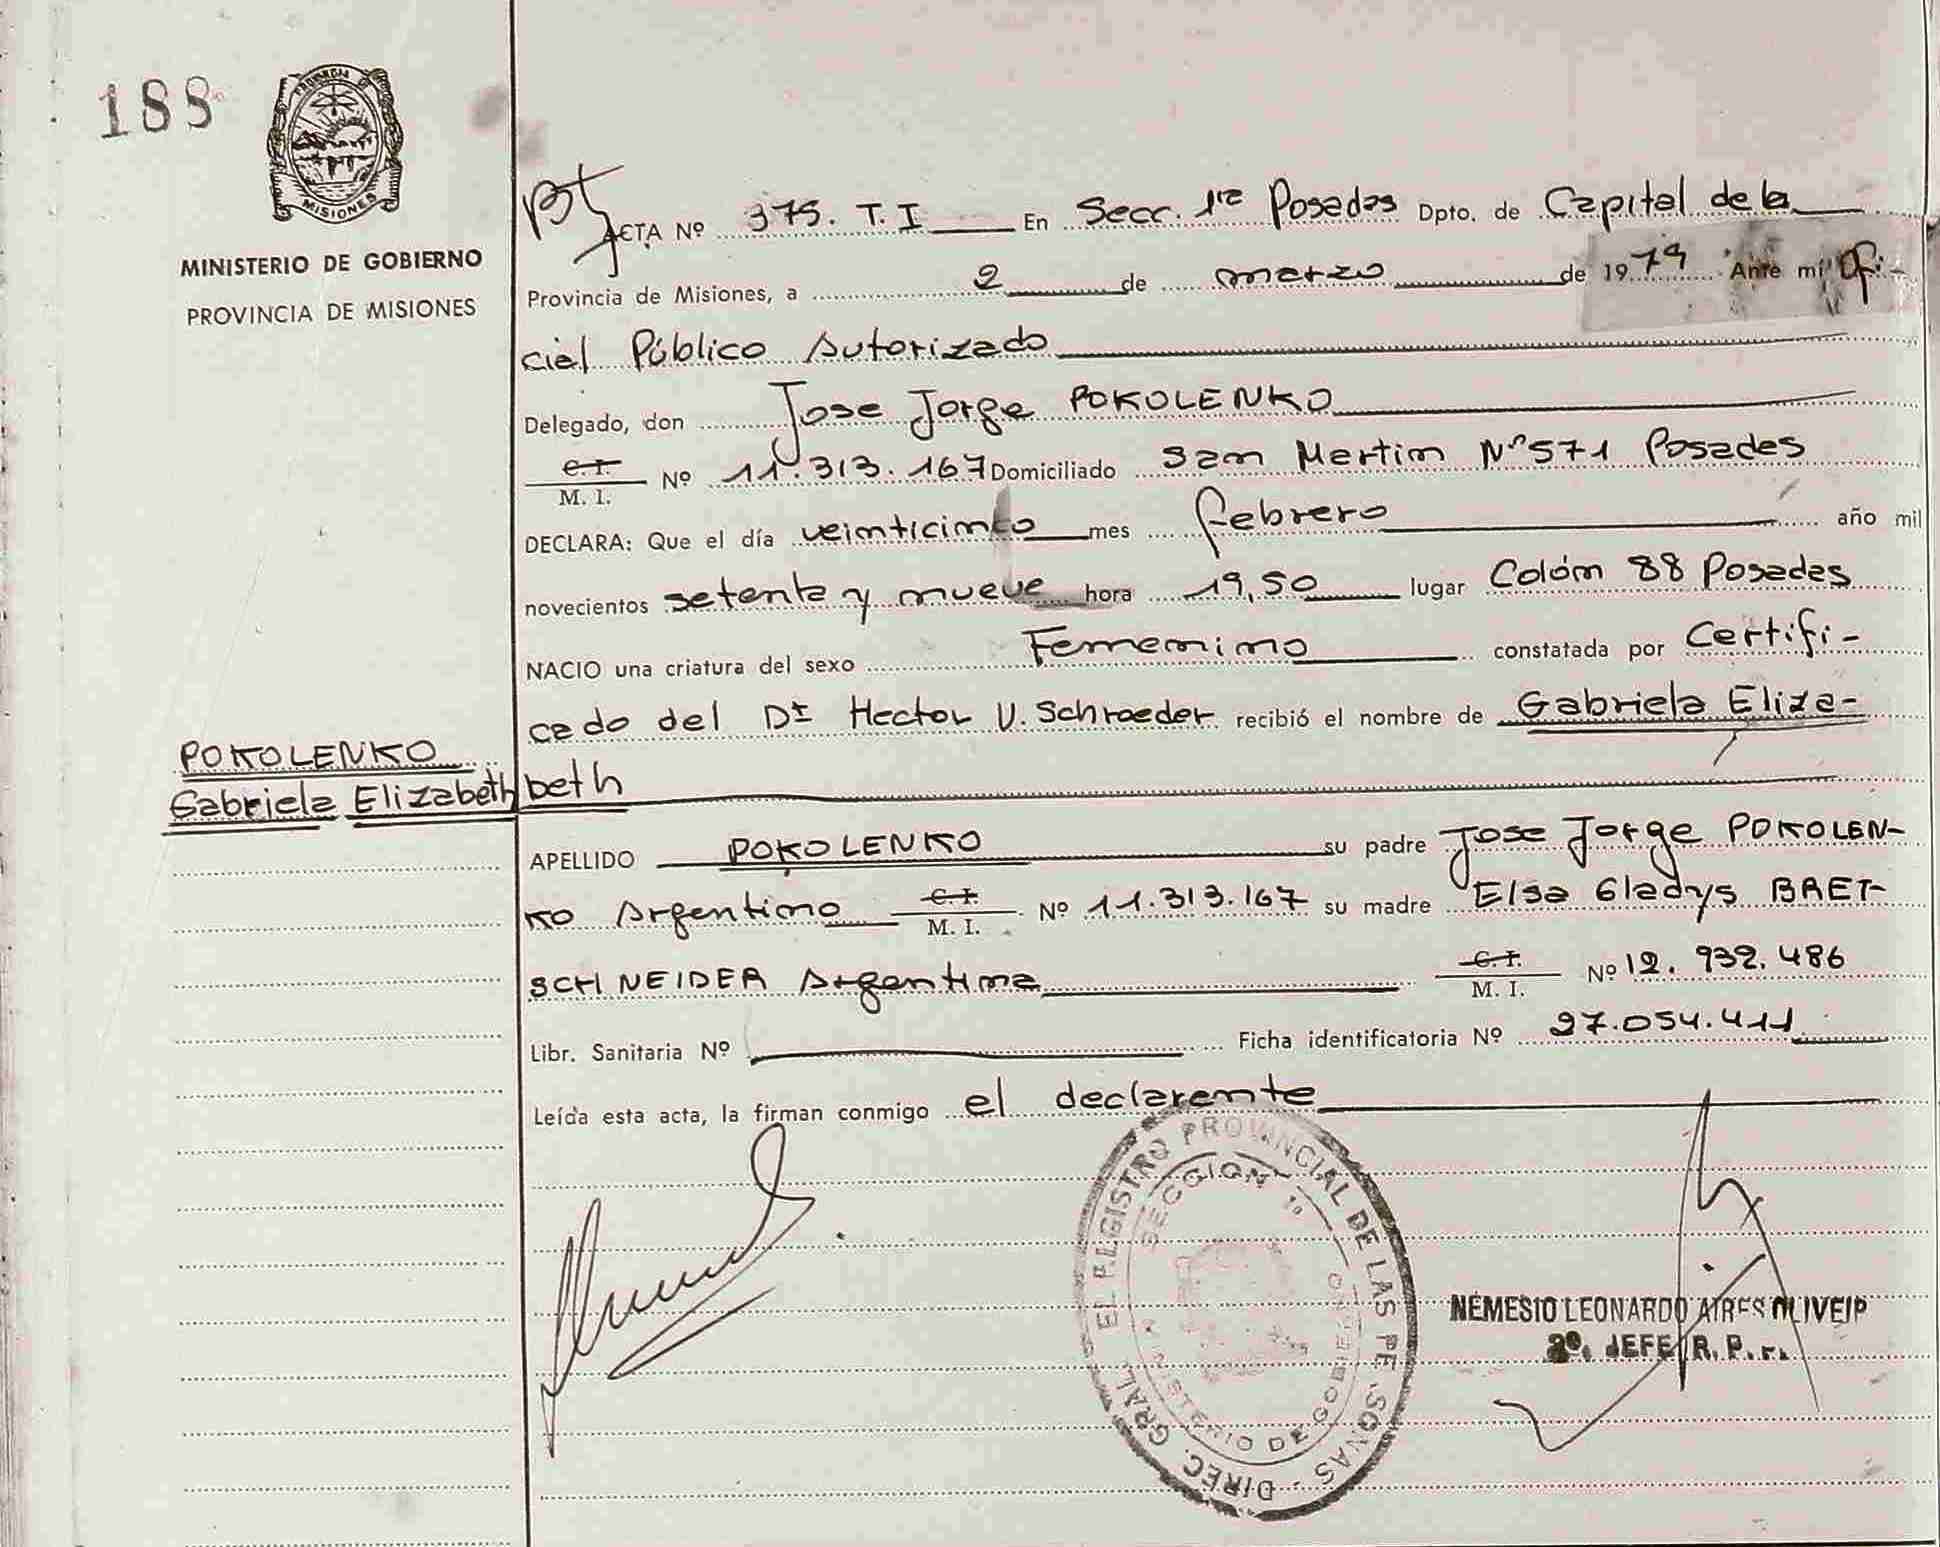 188
PROVINCIA DE
MISIONES
MINISTERIO DE GOBIERNO
PROVINCIA DE MISIONES
ACTA Nº 375. T. I En Secc. 1ra Posadas Dpto. de Capital de la
Provincia de Misiones, a 2 de marzo de 1979 Ante mí Ofi-
cial Público Autorizado
Delegado, don Jose Jorge POKOLENKO
C. I.
M. I. Nº 11.313.167 Domiciliado San Martin Nº 571 Posadas
DECLARA: Que el día veinticinco mes febrero año mil
novecientos setenta y nueve hora 19,50 lugar Colón 88 Posadas
NACIO una criatura del sexo Femenino constatada por Certifi-
cado del Dr Hector U. Schroeder recibió el nombre de Gabriela Eliza-
beth
POKOLENKO
Gabriela Elizabeth
APELLIDO POKOLENKO su padre Jose Jorge POKOLEN-
KO Argentino C. I. M. I. Nº 11.313.167 su madre Elsa Gladys BRET-
SCHNEIDER Argentina C. I. M. I. Nº 12.932.486
Libr. Sanitaria Nº Ficha identificatoria Nº 27.054.411
Leída esta acta, la firman conmigo el declarante
DIREC. GRAL. EL REGISTRO PROVINCIAL DE LAS PE SONAS
SECCION 1º
MINISTERIO DE GOBIERNO
NEMESIO LEONARDO AIRES OLIVEIR
2º. JEFE R. P. r.